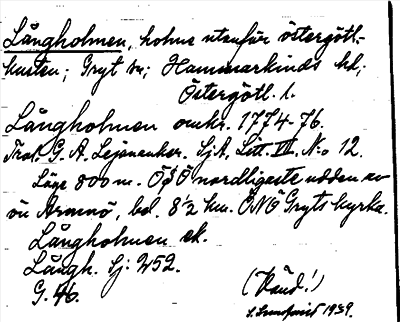 Långholmen, holme utanför östergöt-
kusten; Gryt sn; Hammarkinds hd;
Östergötl. l.
Långholmen omkr. 1774-76.
Trol. G. A. Lejonanker. SjA, Litt. VII, No 12.
Läge 800 m. OSO nordligaste udden av
ön Armnö, bel. 8½ km. ONO Gryts kyrka.
Långholmen ek.
Långh. Sj: 252.
G. 46.
(Känd!)
1939.